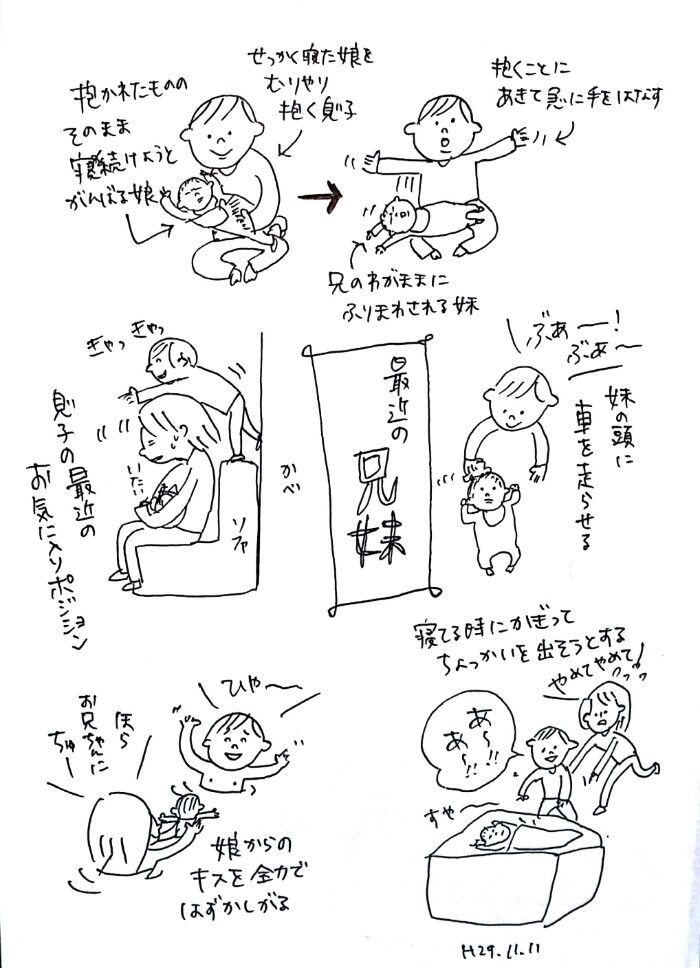 せっかく寝た娘を
むりやり
抱く息子
抱かれたものの
そのまま
寝続けようと
がんばる娘
抱くことに
あきて急に手をはなす
兄のわがままに
ふりまわされる妹
きゃっ きゃっ
息子の最近の
お気に入りポジション
いたい
ソファ
かべ
最近の
兄妹
ぶぁー!
ぶぁ〜
妹の頭に
車を走らせる
ひゃ〜
ほら
お兄ちゃんに
ちゅー
娘からの
キスを全力で
はずかしがる
寝てる時にかぎって
ちょっかいを出そうとする
やめてやめて!
あ〜!!
あ〜!!
すや〜
H29.11.11